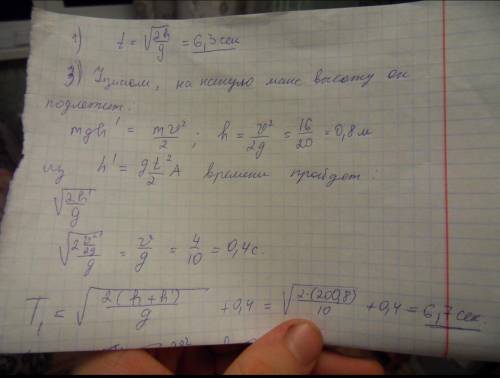 1) t = √(2h/g) = 6,3 сек
3) Узнаем, на какую макс высоту он
подлетит:
mgh' = mv²/2 ; h = v²/2g = 16/20 = 0,8 м
из h' = g t²/2 А времени пройдет:
√(2h'/g)
√(2 v²/2g / g) = v/g = 4/10 = 0,4 с.
T₁ = √(2(h+h')/g) + 0,4 = √(2·(200,8)/10) + 0,4 = 6,7 сек.